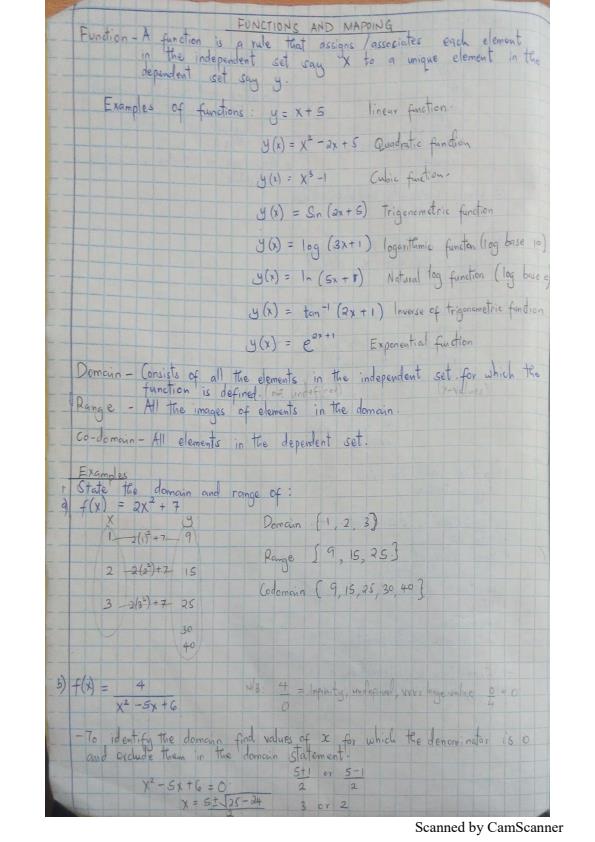 FUNCTIONS AND MAPPING
Function - A function is a rule that assigns / associates each element
in the independent set say X to a unique element in the
dependent set say y.
Examples of functions : y = x + 5 linear function.
y(x) = x² - 2x + 5 Quadratic function
y(x) = x³ - 1 Cubic function.
y(x) = Sin (2x + 5) Trigonometric function
y(x) = log (3x + 1) logarithmic function (log base 10)
y(x) = ln (5x + 8) Natural log function (log base e
y(x) = tan⁻¹ (2x + 1) Inverse of trigonometric function
y(x) = e²ˣ⁺¹ Exponential function
Domain - Consists of all the elements in the independent set for which the
function is defined. (not undefined) (x-values)
Range - All the images of elements in the domain.
Co-domain - All elements in the dependent set.
Examples
1. State the domain and range of :
a) f(x) = 2x² + 7
x y Domain {1, 2, 3}
1 2(1)²+7 9
Range {9, 15, 25}
2 2(2²)+7 15
Codomain {9, 15, 25, 30, 40}
3 2(3²)+7 25
30
40
b) f(x) = 4 / x² - 5x + 6 N/B. 4/0 = Infinity, undefined, very large value 0/4 = 0
- To identify the domain find values of x for which the denominator is 0
and exclude them in the domain statement.
x² - 5x + 6 = 0 5+1/2 or 5-1/2
x = 5±√25-24 / 2 3 or 2
Scanned by CamScanner